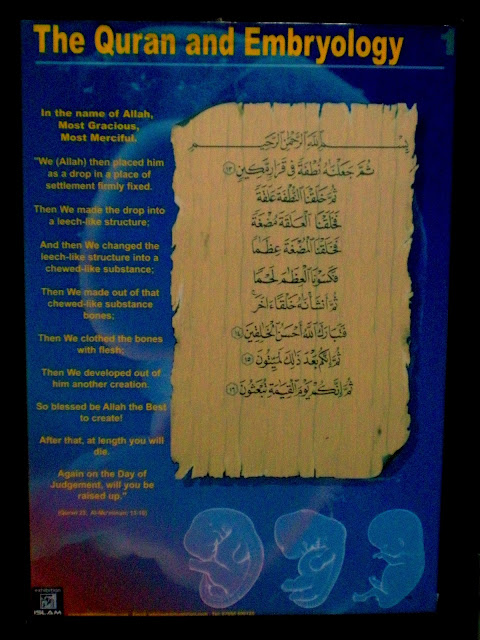 The Quran and Embryology
1
In the name of Allah,
Most Gracious,
Most Merciful.
"We (Allah) then placed him
as a drop in a place of
settlement firmly fixed.
Then We made the drop into
a leech-like structure;
And then We changed the
leech-like structure into a
chewed-like substance;
Then We made out of that
chewed-like substance
bones;
Then We clothed the bones
with flesh;
Then We developed out of
him another creation.
So blessed be Allah the Best
to create!
After that, at length you will
die.
Again on the Day of
Judgement, will you be
raised up."
(Quran 23, Al-Mu'minun: 13-16)
بِسْمِ ٱللَّهِ ٱلرَّحْمَٰنِ ٱلرَّحِيمِ
ثُمَّ جَعَلْنَٰهُ نُطْفَةً فِى قَرَارٍ مَّكِينٍ ١٣
ثُمَّ خَلَقْنَا ٱلنُّطْفَةَ عَلَقَةً
فَخَلَقْنَا ٱلْعَلَقَةَ مُضْغَةً
فَخَلَقْنَا ٱلْمُضْغَةَ عِظَٰمًا
فَكَسَوْنَا ٱلْعِظَٰمَ لَحْمًا
ثُمَّ أَنشَأْنَٰهُ خَلْقًا ءَاخَرَ ۚ
فَتَبَارَكَ ٱللَّهُ أَحْسَنُ ٱلْخَٰلِقِينَ ١٤
ثُمَّ إِنَّكُم بَعْدَ ذَٰلِكَ لَمَيِّتُونَ ١٥
ثُمَّ إِنَّكُمْ يَوْمَ ٱلْقِيَٰمَةِ تُبْعَثُونَ ١٦
exhibition
ISLAM